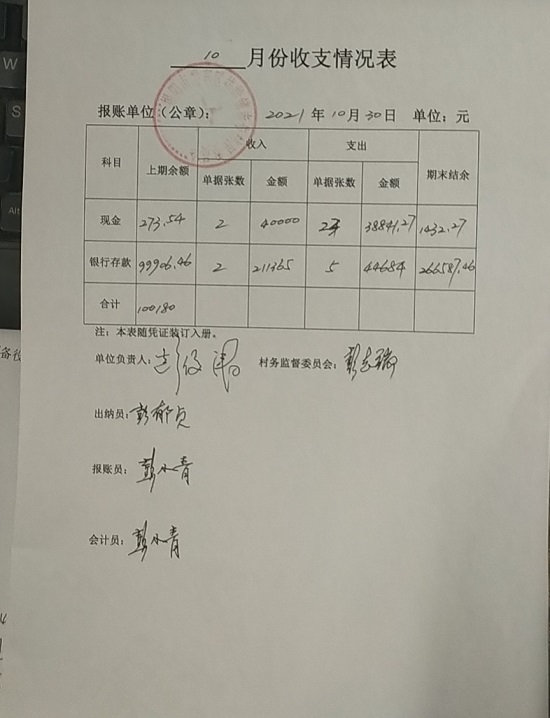 10 月份收支情况表
报账单位(公章): 2021年10月30日 单位:元
科目 上期余额 收入 支出 期末结余
单据张数 金额 单据张数 金额
现金 273.54 2 40000 38841.27 1432.27
银行存款 99906.46 2 211365 5 44684 266587.46
合计 100180
注:本表随凭证装订入册。
单位负责人: 村务监督委员会:
出纳员:彭郁贞
报账员:彭水青
会计员:彭水青
W
S
Alt